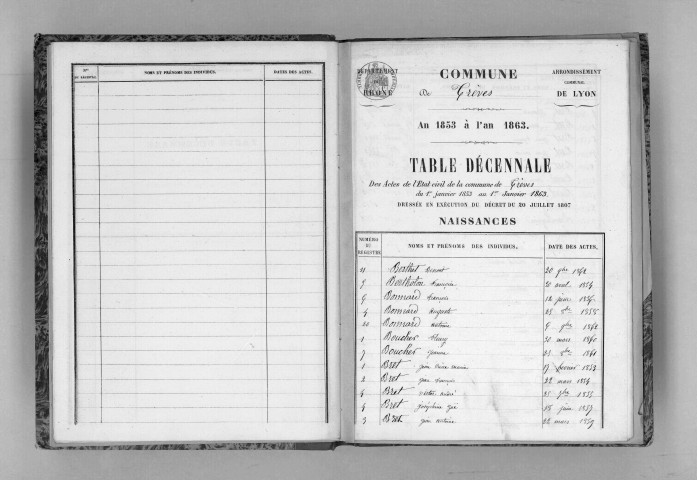 Nos DU REGISTRE.
NOMS ET PRÉNOMS DES INDIVIDUS.
DATES DES ACTES.
DÉPARTEMENT
DU
RHÔNE
COMMUNE
De Grèves
ARRONDISSEMENT
COMMUNAL
DE LYON
An 1853 à l'an 1863.
TABLE DÉCENNALE
Des Actes de l'Etat civil de la commune de Grèves
du 1er janvier 1853 au 1er Janvier 1863.
DRESSÉE EN EXÉCUTION DU DÉCRET DU 20 JUILLET 1807
NAISSANCES
NUMÉRO DU REGISTRE
NOMS ET PRÉNOMS DES INDIVIDUS.
DATE DES ACTES.
11 Berthet Benoit 20 9bre 1862
5 Bertholon François 20 avril 1854
6 Bonnard François 12 juin
4 Bonnard Auguste 25 1855
10 Bonnard Antoine 9bre 1862
1 Boucher 20 mars 1860
7 Boucher Jeanne 23 1861
1 Bret Jean 17 février 1853
2 Bret Jean François 22 mars 1854
6 Bret 25 9bre 1855
4 Bret Joséphine 15 juin 1857
3 Bret Jean Antoine 22 mars 1859